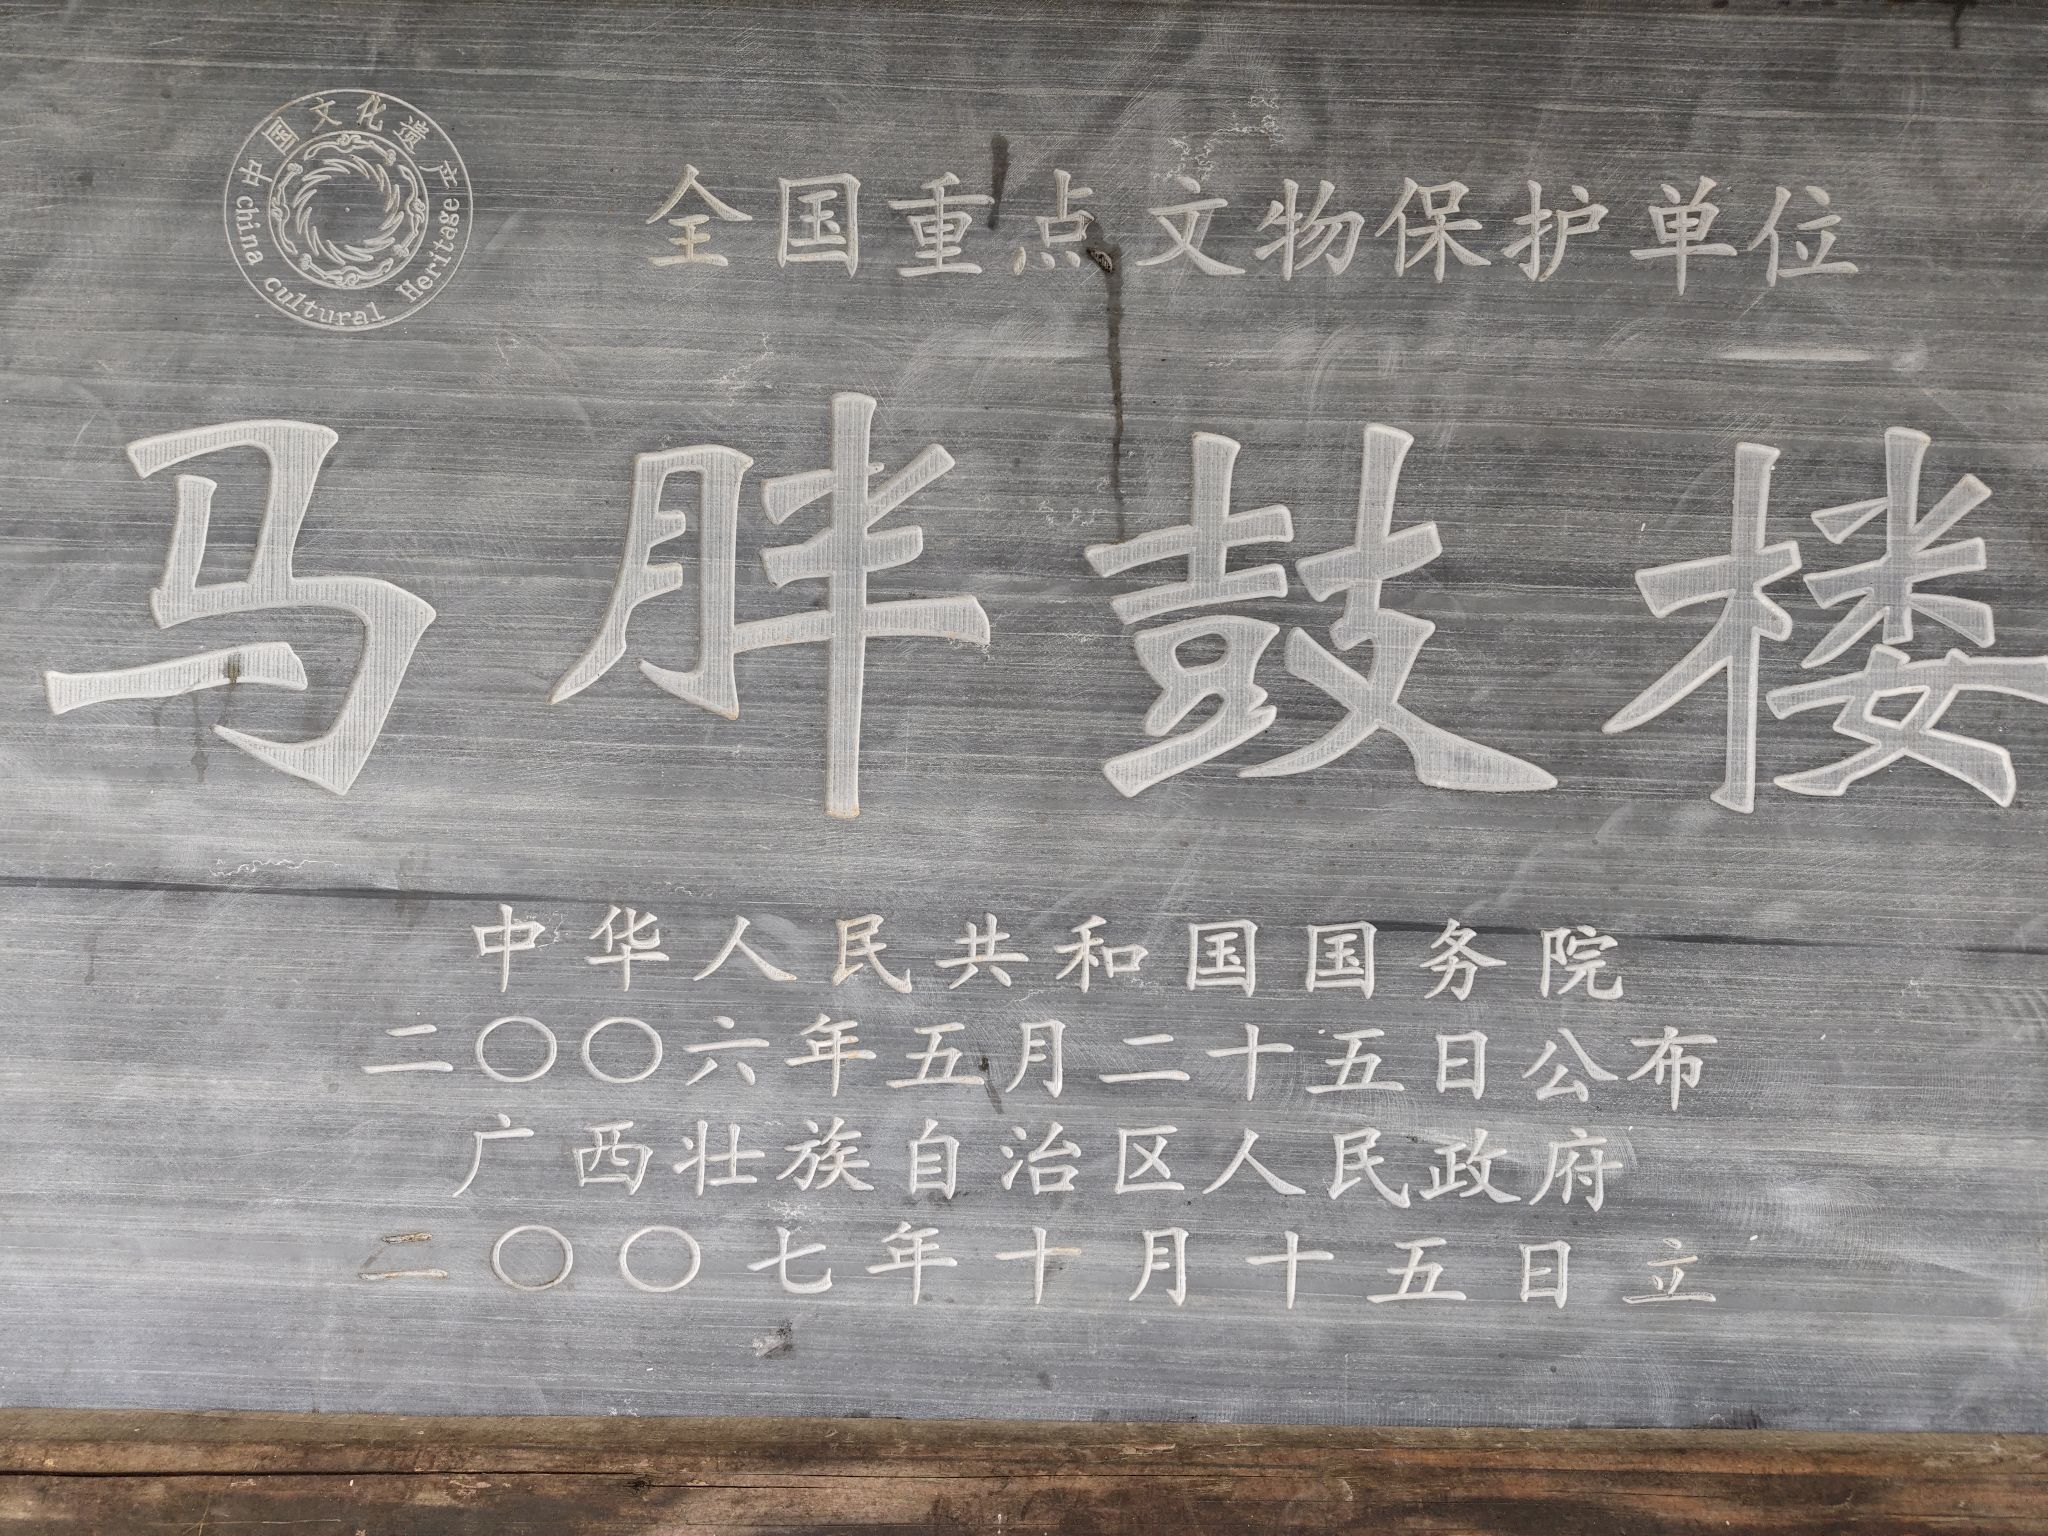 中国文化遗产
china cultural Heritage
全国重点文物保护单位
马胖鼓楼
中华人民共和国国务院
二〇〇六年五月二十五日公布
广西壮族自治区人民政府
二〇〇七年十月十五日立